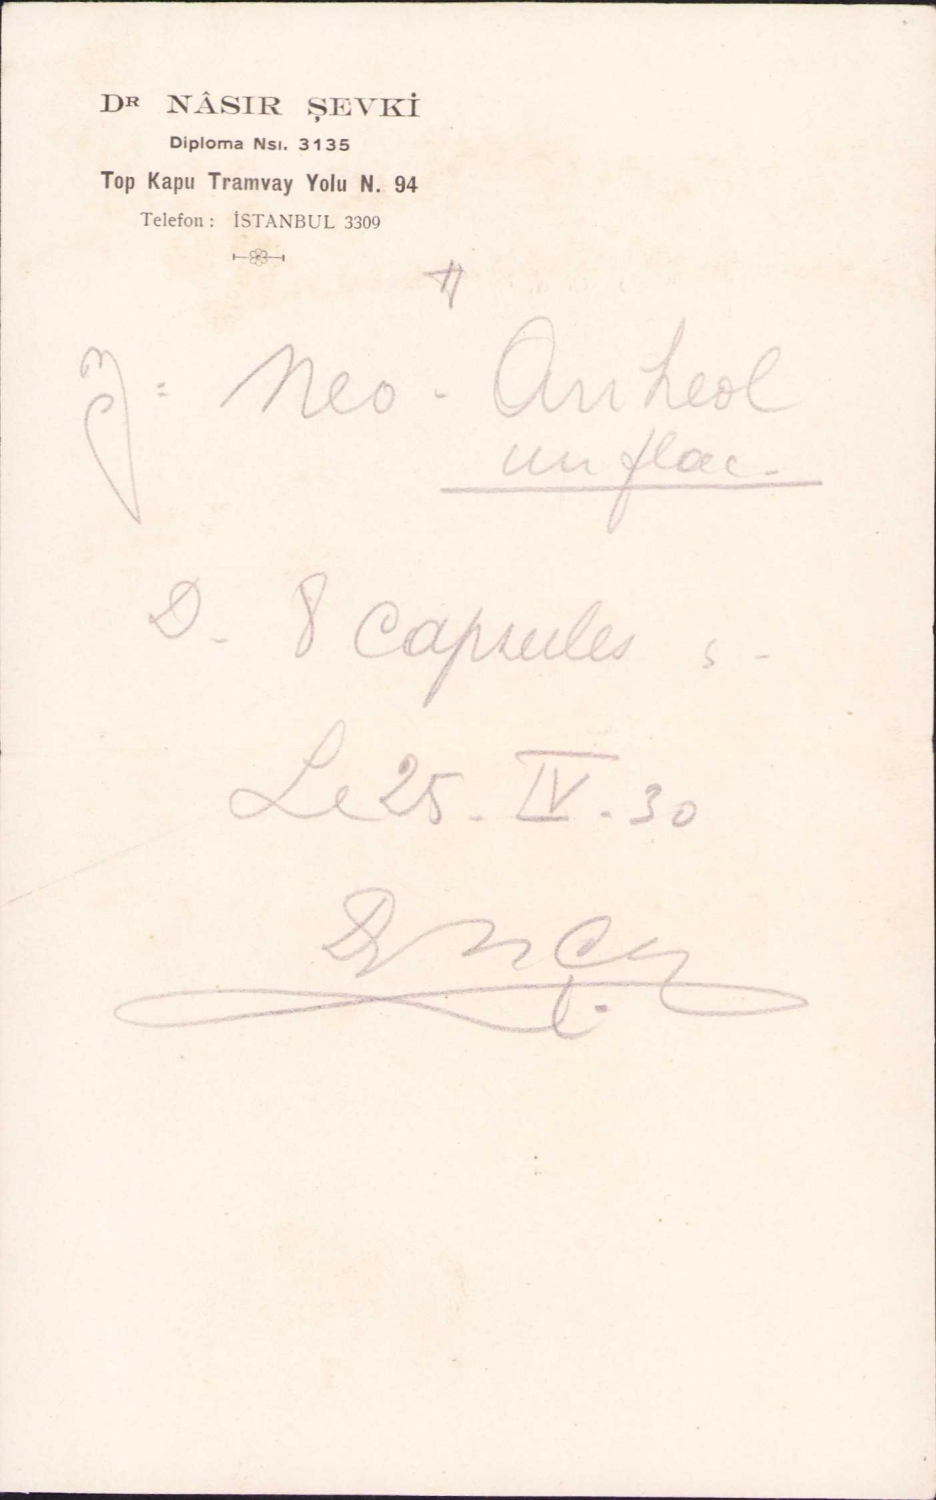 DR NÂSIR ŞEVKİ
Diploma Nsı. 3135
Top Kapu Tramvay Yolu N. 94
Telefon : İSTANBUL 3309
Neo - Arrheol
un flac.
D. 8 capsules
Le 25. IV. 30